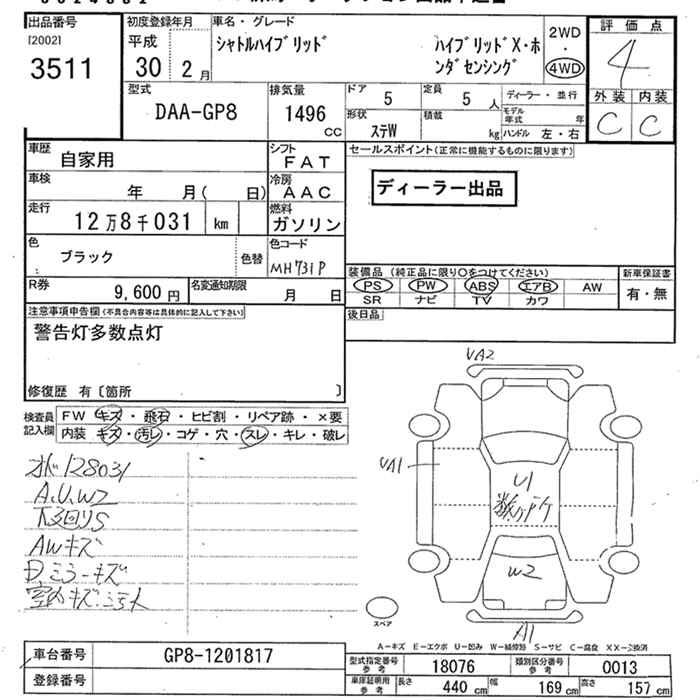 出品番号
[2002]
3511
初度登録年月
平成
30 2月
車名・グレード
シャトルハイブリッド
ハイブリッドX・ホンダセンシング
2WD
・
4WD
評価点
4
外装 内装
C C
型式
DAA-GP8
排気量
1496
cc
ドア
5
定員
5 人
ディーラー・並行
モデル年式 年
形状
ステW
積載
kg
ハンドル 左・右
車歴
自家用
シフト
FAT
車検
年 月( 日)
冷房
AAC
走行
12万8千031 km
燃料
ガソリン
色
ブラック
色替
色コード
MH731P
R券
9,600 円
名変通知期限
月 日
セールスポイント(正常に機能するものに限ります)
ディーラー出品
装備品 (純正品に限り○をつけてください)
PS PW ABS エアB AW
SR ナビ TV カワ
新車保証書
有・無
後日品
注意事項申告欄(不具合内容等は具体的に記入して下さい)
警告灯多数点灯
修復歴 有〔箇所 〕
検査員記入欄
FW キズ・飛石・ヒビ割・リペア跡・×要
内装 キズ・汚レ・コゲ・穴・スレ・キレ・破レ
オド128031
A.U.W2
下廻りS
AWキズ
Dミラーキズ
室内キズ・汚れ
UA2
UA1
U1
数ヶ所
W2
A1
スペア
A-キズ E-エクボ U-凹み W-補修跡 S-サビ C-腐食 XX-交換済
車台番号
GP8-1201817
登録番号
型式指定番号 参考
18076
類別区分番号 参考
0013
車庫証明用 参考
長さ 440 cm
幅 169 cm
高さ 157 cm